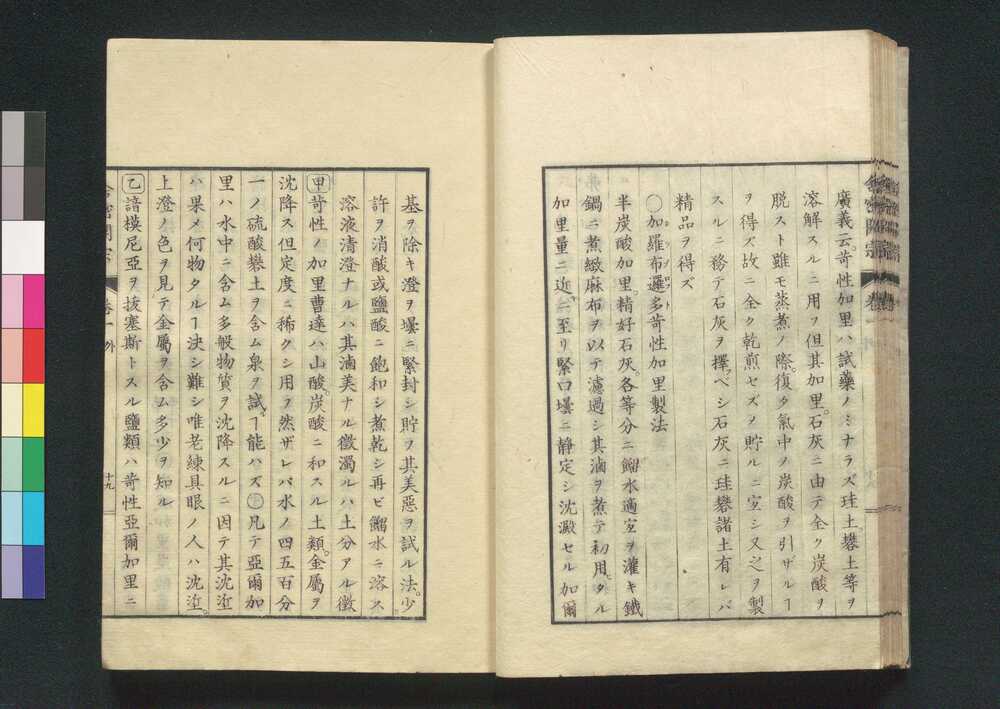 廣義云。苛性加里ハ試藥ノミナラズ珪土礬土等ヲ
溶解スルニ用フ但其加里。石灰ニ由テ全ク炭酸ヲ
脱スト雖モ蒸煮ノ際。復タ氣中ノ炭酸ヲ引ザルヿ
ヲ得ズ故ニ全ク乾煎セズヲ貯ルニ宜シ又之ヲ製
スルニ務テ石灰ヲ擇ベシ石灰ニ珪礬諸土有レバ
精品ヲ得ズ
〇加羅布邏多苛性加里製法
半炭酸加里。精好石灰。各等分ニ餾水適宜ヲ灌キ鐵
鍋ニ煮緻麻布ヲ以テ濾過シ其滷ヲ煮テ初用タル
加里量ニ近キニ至リ緊口壜ニ静定シ沈澱セル加爾
基ヲ除キ澄ヲ壜ニ緊封シ貯ヲ其美惡ヲ試ル法。少
許ヲ消酸或鹽酸ニ飽和シ煮乾シ再ビ餾水ニ溶ス。
溶液清澄ナルハ其滷美ナル徴濁ルハ土分アル徴
甲苛性ノ加里曹達ハ山酸。炭酸ニ和スル土類。金屬ヲ
沈降ス但定度ニ稀クシ用ヲ然ザレバ水ノ四五百分
一ノ硫酸礬土ヲ含ム泉ヲ試ヿ能ハズ凡テ亞爾加
里ハ水中ニ含ム多般物質ヲ沈降スルニ因テ其沈垽
ハ果メ何物タルヿ決シ難シ唯老練具眼ノ人ハ沈垽。
上澄ノ色ヲ見テ金屬ヲ含ム多少ヲ知ル
乙諳模尼亞ヲ拔塞斯トスル鹽類ハ苛性亞爾加里ニ
卷一 外
十九